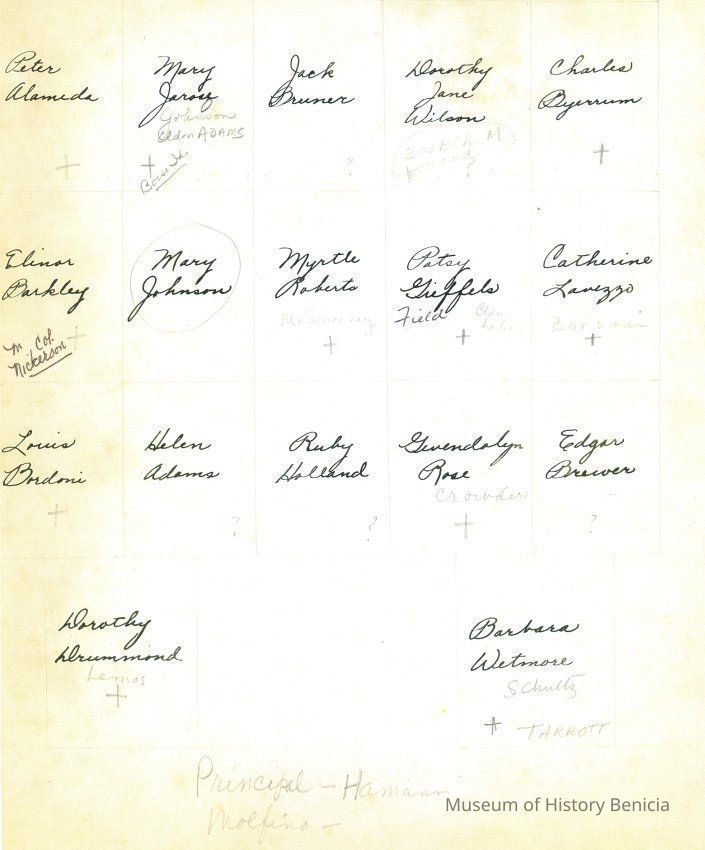 Peter
Alameda
+
Mary
Jarosz
Johnson
Eldon ADAMS
+
Boise Id.
Jack
Bruner
?
Dorothy
Jane
Wilson
M
?
Charles
Byerrum
+
Elinor
Barkley
+
m Col.
Nickerson
Mary
Johnson
Myrtle
Roberts
+
Patsy
Gieffels
Field
+
Catherine
Lavezzo
Bordoni
+
Louis
Bordoni
+
Helen
Adams
?
Ruby
Holland
?
Gwendolyn
Rose
Crowder
+
Edgar
Brewer
?
Dorothy
Drummond
Lemos
+
Barbara
Wetmore
Schultz
+
TARROTT
Principal - Hamann
Molfino -
Museum of History Benicia